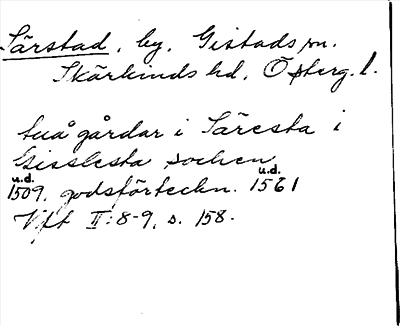 Särstad, by, Gistads sn.
Skärkinds hd, Östergl.
tuå gårdar i Säresta i
Gisslesta sochen
u.d. u.d.
1509, godsförteckn. 1561
Vft II:8-9, s. 158.